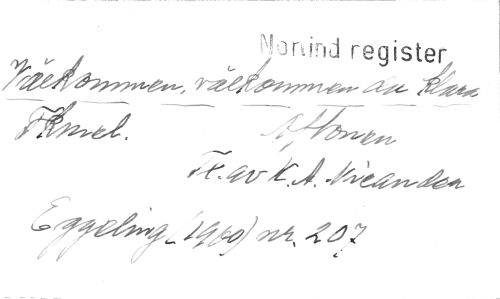 Norlind register
Välkommen, välkommen du klara
Fkmel. Aftonen
T. av K. A. Nicander
Eggeling (1960) nr. 207